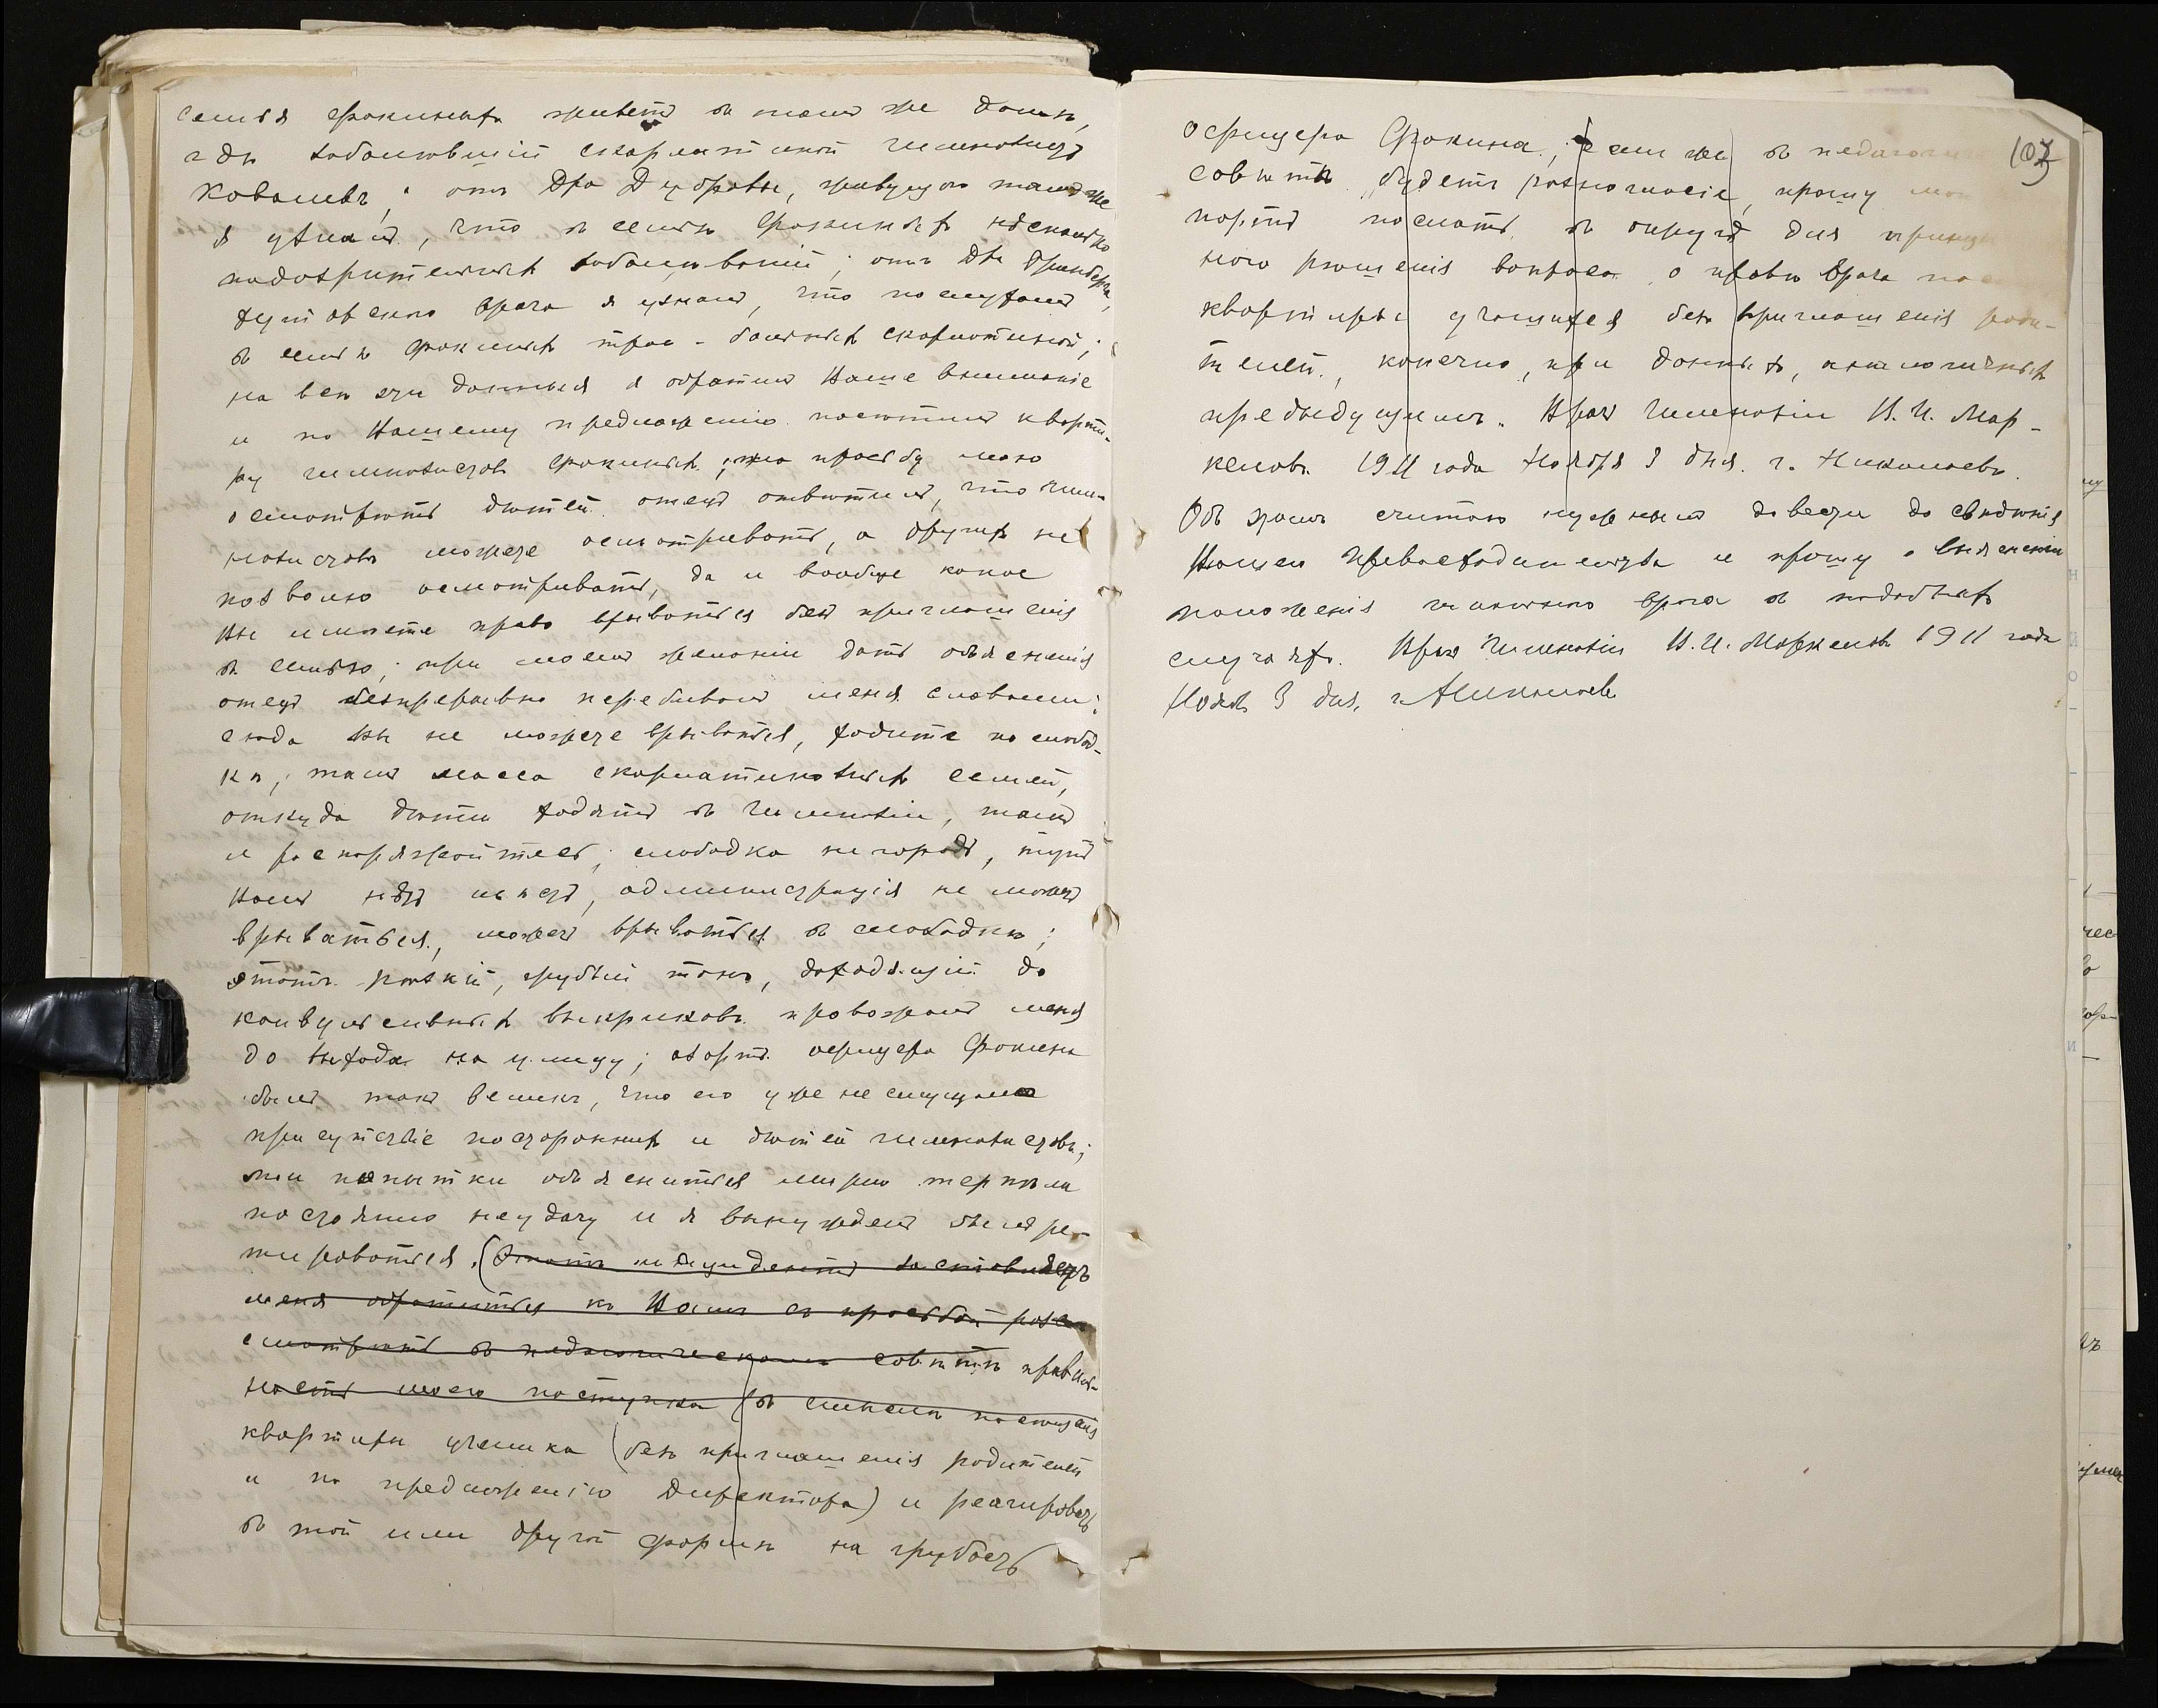 семья Фокиныхъ живетъ въ томъ же домѣ,
гдѣ заболѣвшій скарлатиной гимназистъ
Ковалевъ; отъ Д-ра Дубравы, живущаго тамъ же
я узналъ, что въ семьѣ Фокиныхъ нѣсколько
подозрительныхъ заболѣваній; отъ Д-ра
врача я узналъ, что по слухамъ,
въ семьѣ Фокиныхъ трое - больныхъ скарлатиной;
на всѣ эти данныя я обратилъ Ваше вниманіе
и по Вашему предложенію посѣтилъ кварти-
ру гимназистовъ Фокиныхъ; на просьбу мою
осмотрѣть дѣтей отецъ отвѣтилъ, что гим-
назистовъ можете осматривать, а другихъ не
позволю осматривать, да и вообще какое
Вы имѣете право врываться безъ приглашенія
въ семью; при моемъ желаніи дать объясненія
отецъ безпрерывно перебивалъ меня словами:
сюда Вы не можете врываться, ходите по слобод-
кѣ, тамъ масса скарлатинозныхъ семей,
откуда дѣти ходятъ въ Гимназіи, тамъ
и распоряжайтесь; слободка не городъ, тутъ
Вамъ нѣтъ мѣста, администрація не можетъ
врываться, можетъ врываться въ слободки;
этотъ рѣзкій, грубый тонъ, доходящій до
конвульсивныхъ выкриковъ провожалъ меня
до выхода на улицу; азартъ офицера Фокина
былъ такъ великъ, что его уже не смущало
присутствіе постороннихъ и дѣтей гимназистовъ;
мои попытки объясниться мирно терпѣли
постоянно неудачу и я вынужденъ былъ ре-
тироваться. (Этотъ инцидентъ заставляетъ
меня обратиться къ Вамъ съ просьбой раз-
смотрѣть въ педагогическомъ совѣтѣ правиль-
ность моего поступка (въ смыслѣ посѣщенія
квартиры ученика (безъ приглашенія родителей
и по предложенію Директора) и реагировать
въ той или другой формѣ на грубость
107
офицера Фокина; если же въ
совѣтѣ будетъ разногласіе, прошу
портъ послать въ округъ для
рѣшенія вопроса о правѣ врача
квартиры учащихся безъ приглашенія роди-
телей, конечно, при данныхъ, аналогичныхъ
предыдущимъ. Врачъ Гимназіи В. И. Мар-
келовъ. 1911 года Ноября 3 дня. г. Николаевъ.
Объ этомъ считаю нужнымъ довести до свѣдѣнія
Вашего Превосходительства и прошу о выясненіи
положенія школьнаго врача въ подобныхъ
случаяхъ. Врачъ Гимназіи В. И. Маркеловъ 1911 года
Нояб. 3 дня, г. Николаевъ